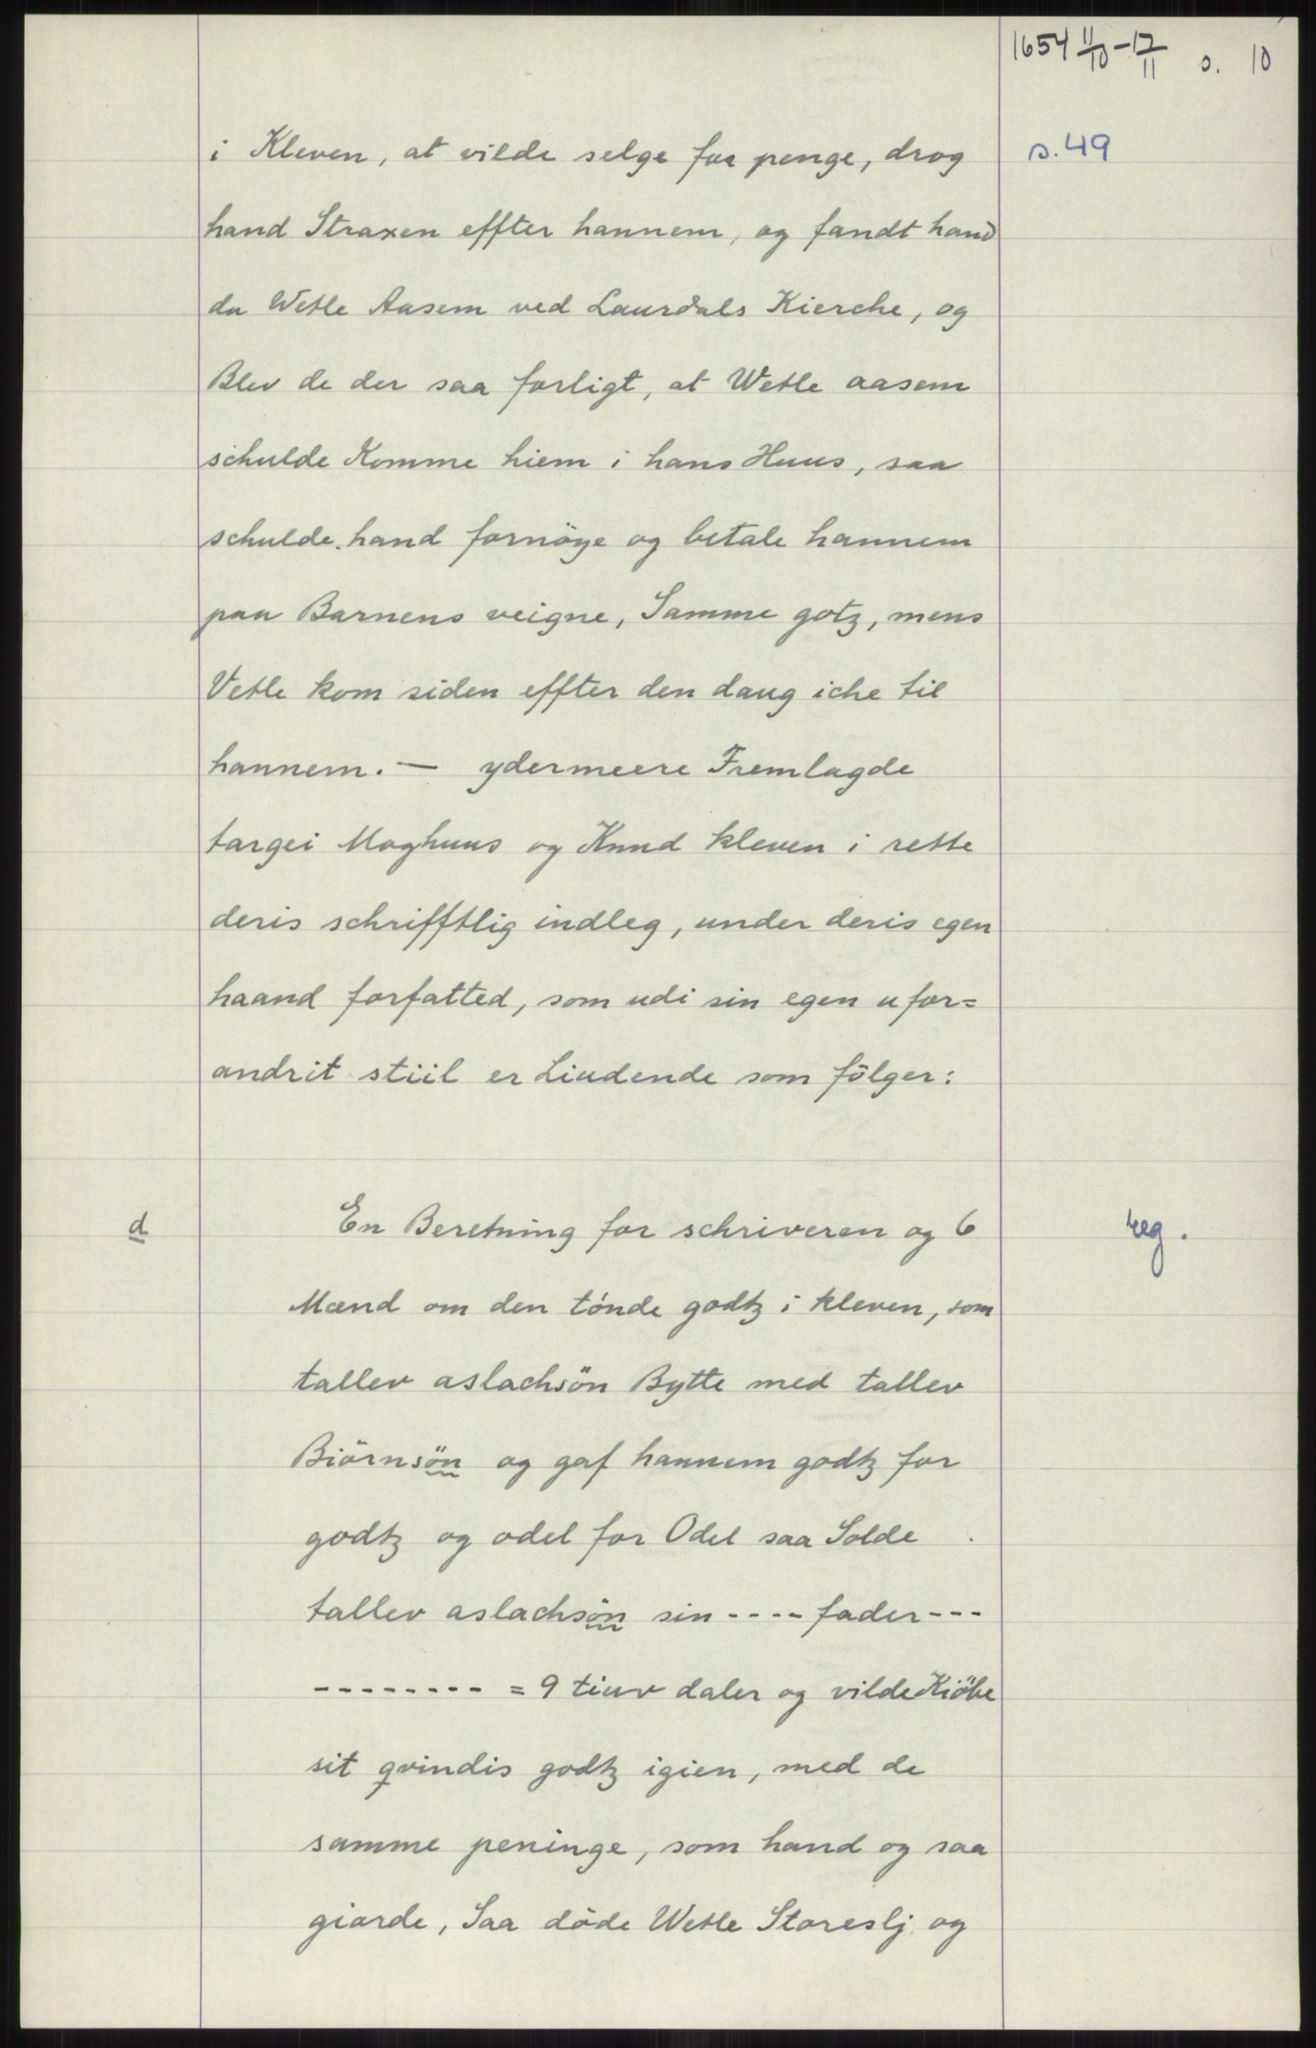 1654 11/10 - 17/11 s. 10
s. 49
i Kleven, at vilde selge for penge, drog
hand Straxen effter hannem, og fandt hand
da Wetle Aasem ved Laurdals Kierche, og
Blev de der saa forligt, at Wetle aasem
schulde Komme hiem i hans Huus, saa
schulde hand fornöye og betale hannem
paa Barnens veigne, Samme gotz, mens
Vetle kom siden effter den daug iche til
hannem. — ydermeere Fremlagde
targei Moghuus og Knud kleven i rette
deris schrifftlig indleg, under deris egen
haand forfatted, som udi sin egen ufor=
andrit stiil er Liudende som fölger:
d
En Beretning for schriveren og 6
reg.
Mænd om den tónde godtz i kleven, som
tallev aslachsön Bytte med tallev
Biörnsön og gaf hannem godtz for
godtz og odel for Odel saa Solde
tallev aslachsön sin ---- fader ---
-------- = 9 tiuv daler og vilde Kiöbe
sit qvindis godtz igien, med de
samme peninge, som hand og saa
giorde, Saa döde Wetle Storeslj og